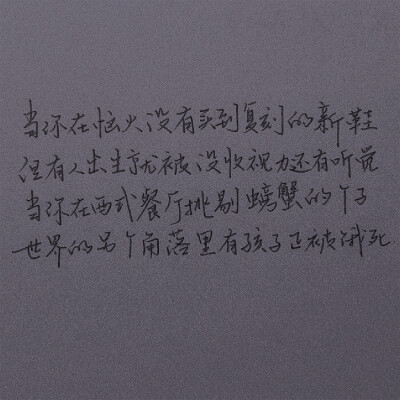 当你在恼火没有买到复刻的新鞋
但有人出生就被没收视力还有听觉
当你在西式餐厅挑剔螃蟹的个子
世界的另个角落里有孩子正被饿死